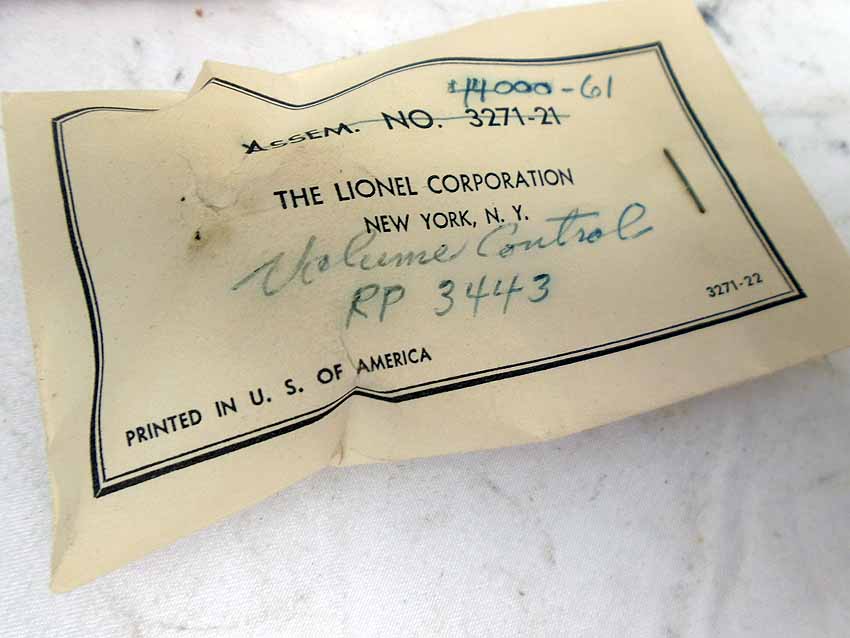 44000-61
ASSEM. NO. 3271-21
THE LIONEL CORPORATION
NEW YORK, N. Y.
Volume Control
RP 3443
3271-22
PRINTED IN U. S. OF AMERICA